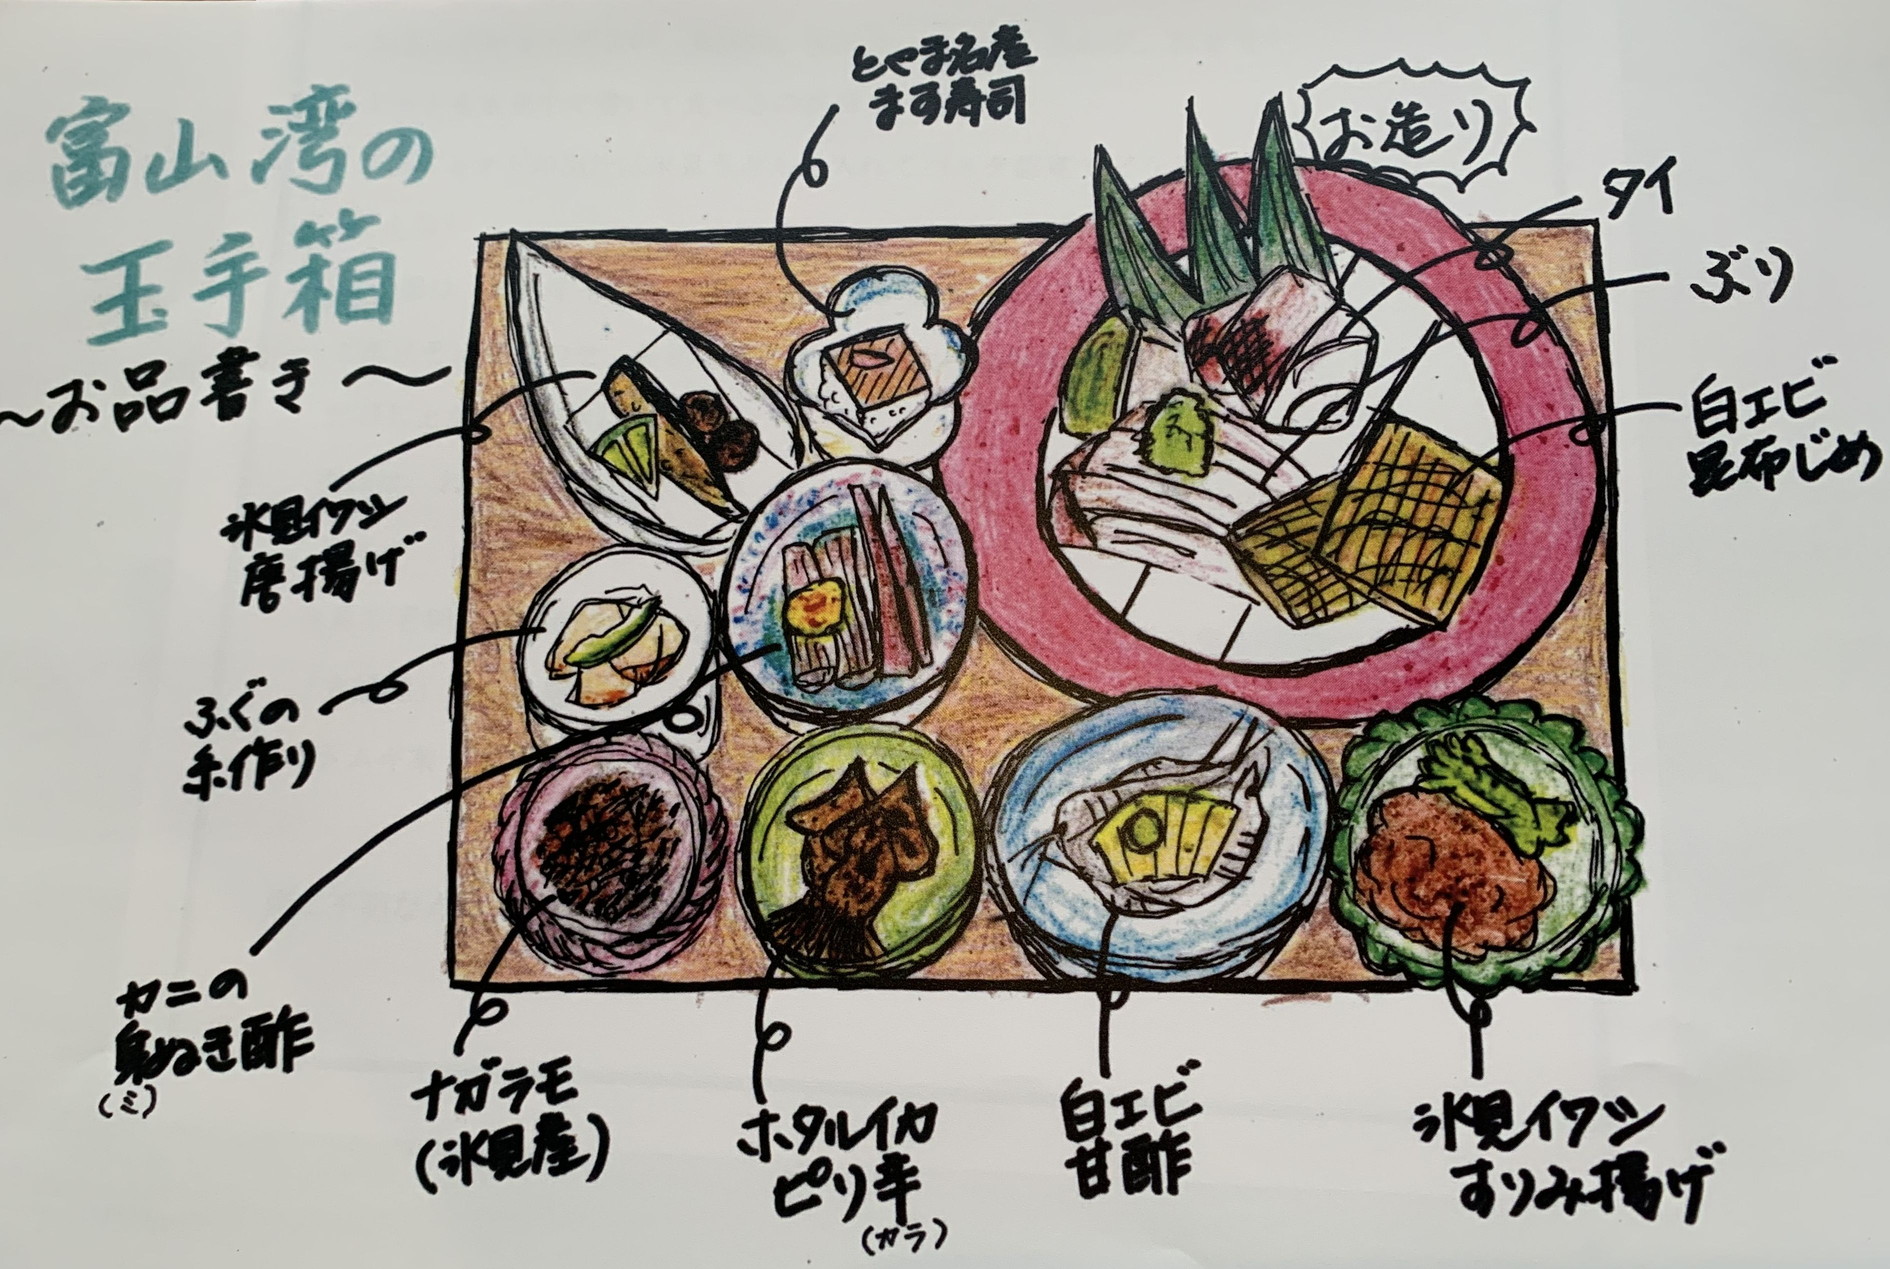 富山湾の
玉手箱
～お品書き～
とやま名産
ます寿司
お造り
タイ
ぶり
白エビ
昆布じめ
氷見イワシ
唐揚げ
ふぐの
カニの
身ぬき酢
(ミ)
ナガラモ
(氷見産)
ホタルイカ
ピリ辛
(カラ)
白エビ
甘酢
氷見イワシ
すりみ揚げ